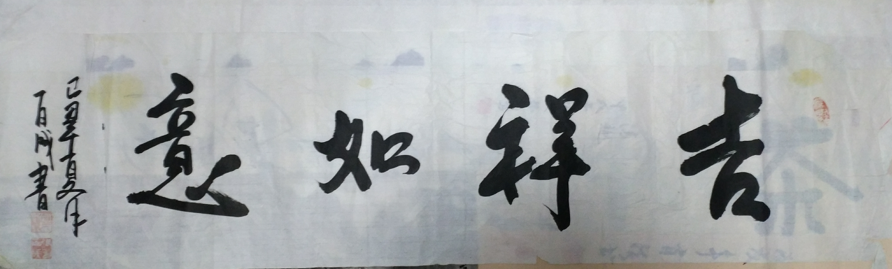 吉祥如意
己丑年夏月
百成書